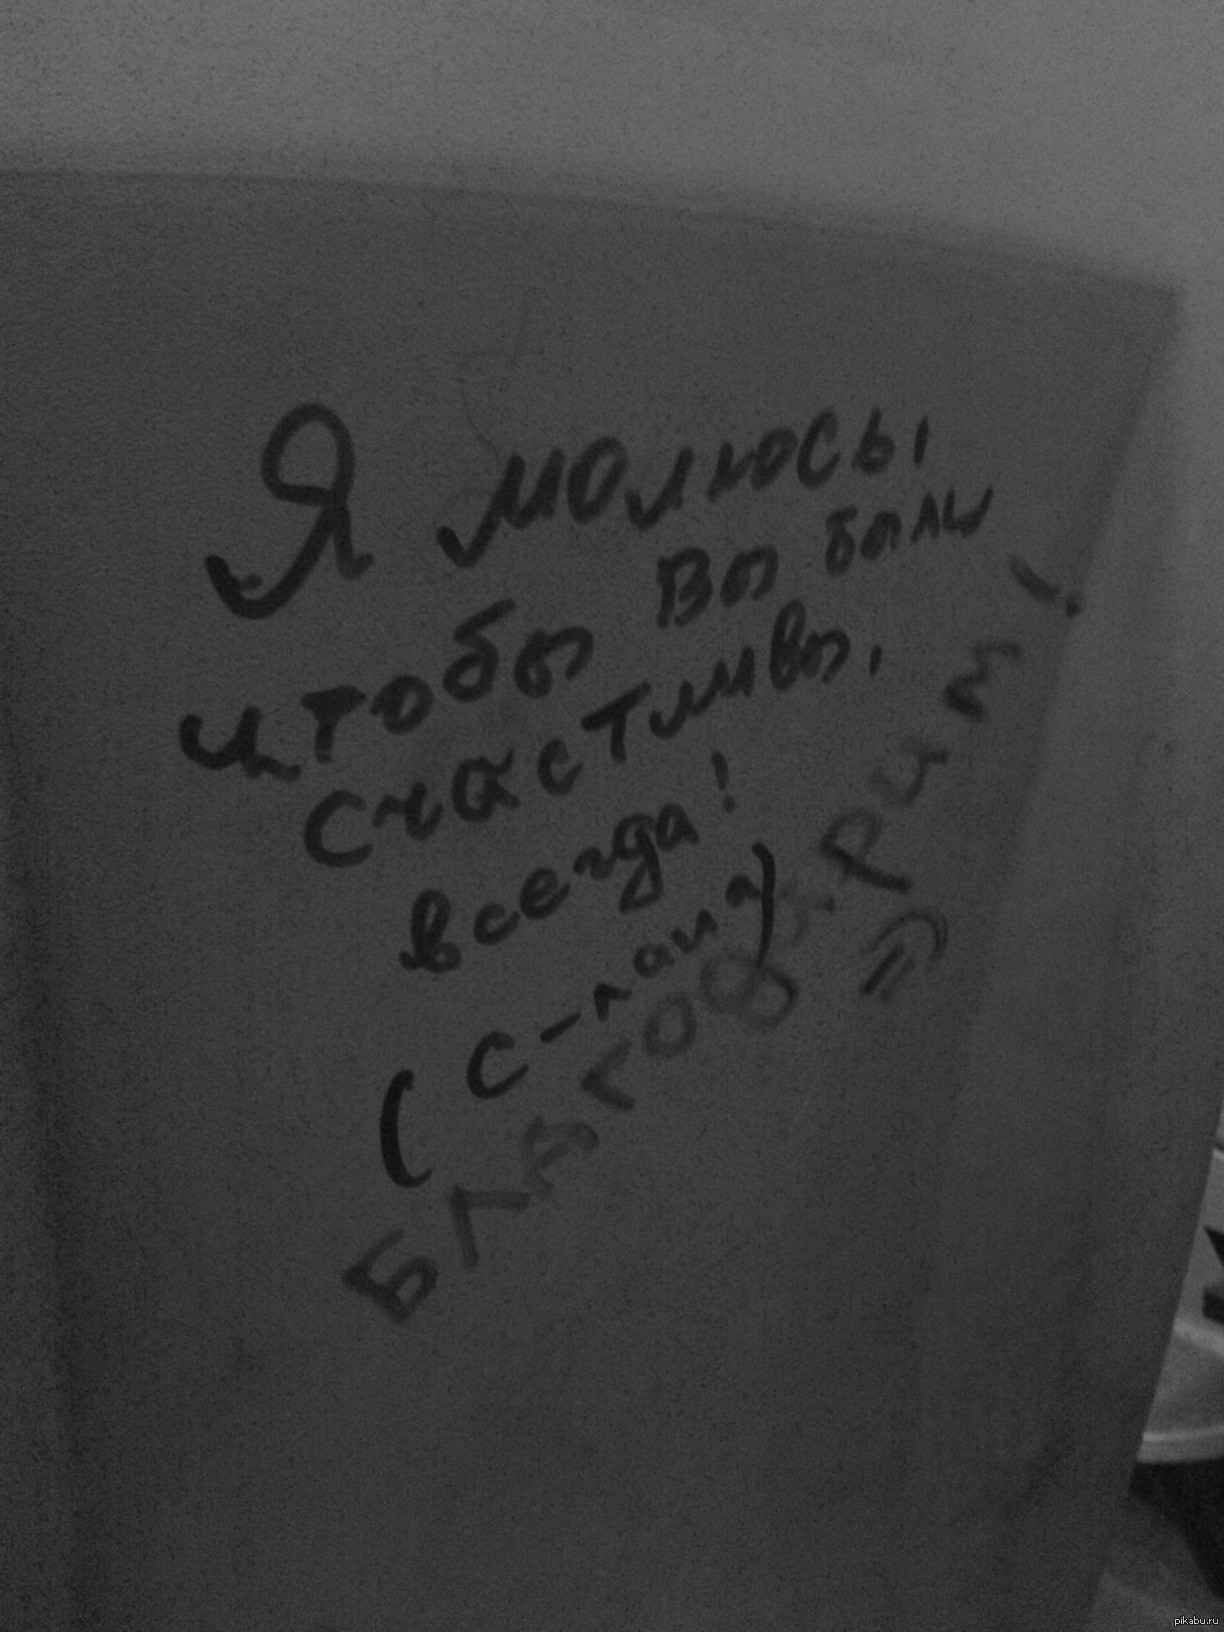 Я молюсь,
чтобы Вы были
счастливы,
всегда!
(с-ната)
pikabu.ru